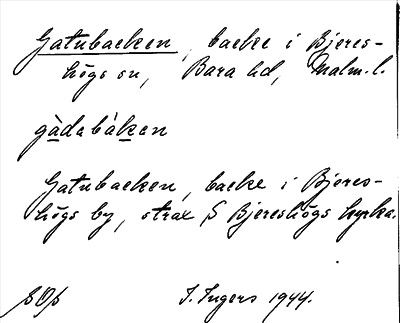 Gatubacken, backe i Bjeres-
högs sn, Bara hd, Malm.l.
gàdabàkan
Gatubacken, backe i Bjeres-
högs by, strax S Bjereshögs kyrka.
I. Ingers 1944.